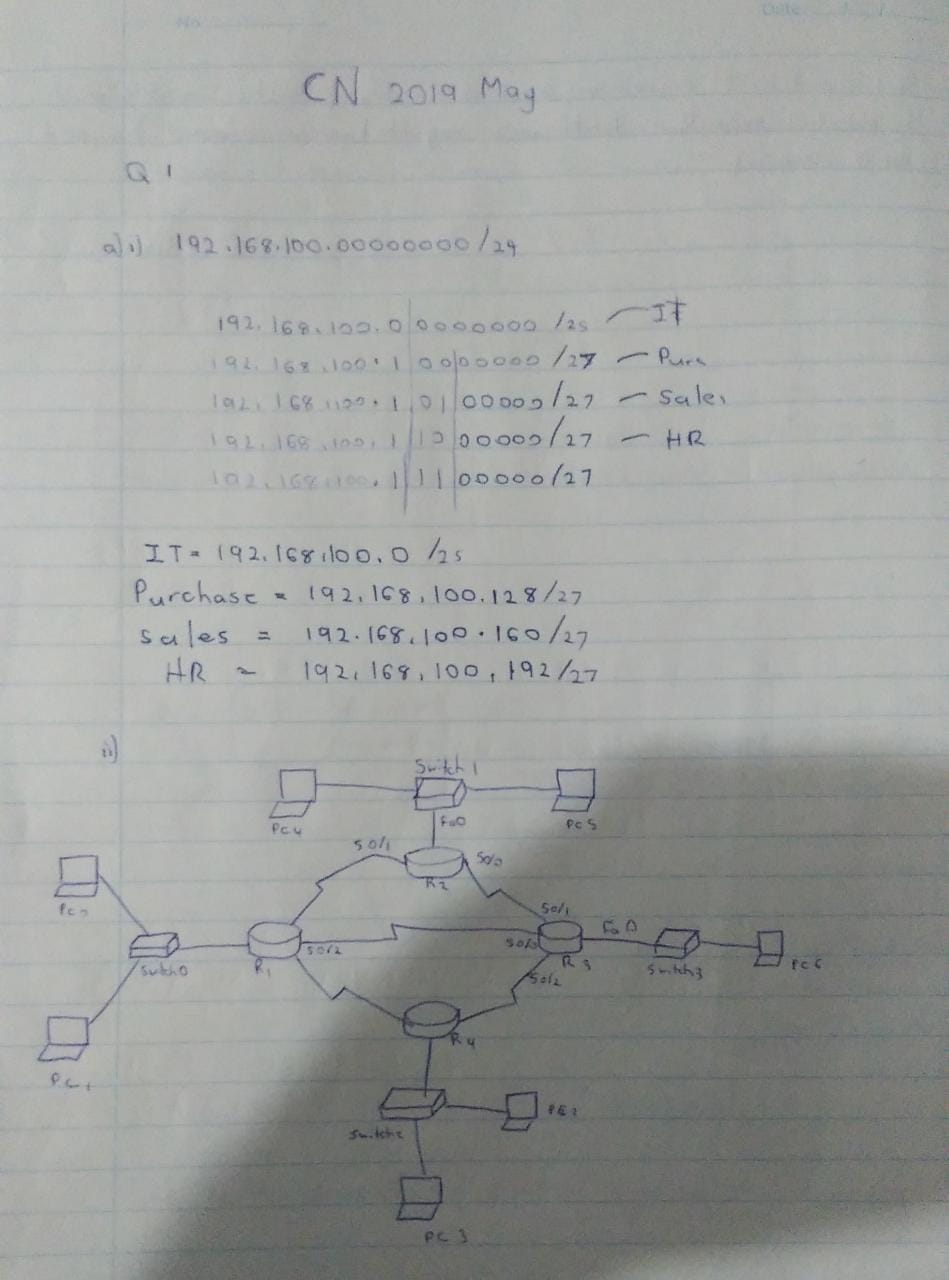 No
Date
CN 2019 May
Q1
a)i) 192.168.100.00000000/24
192.168.100.0 0000000 /25 — IT
192.168.100.1 00 00000 /27 — Purc
192.168.100.1 01 00000/27 — Sales
192.168.100.1 10 00000/27 — HR
192.168.100.1 11 00000/27
IT = 192.168.100.0 /25
Purchase = 192.168.100.128/27
Sales = 192.168.100.160/27
HR = 192.168.100.192/27
ii)
Switch 1
PC4
Fa0
PC5
S0/1
S0/0
R2
S0/1
Fa0
S0/2
S0/0
Switch0
R1
R3
Switch3
PC6
S0/2
R4
PC1
Switch2
PC3